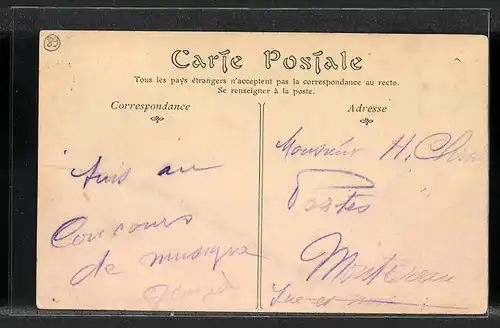 Carte Postale
Tous les pays étrangers n'acceptent pas la correspondance au recto.
Se renseigner à la poste.
Correspondance
Adresse
au
Concours
de musique
Monsieur H.
Postes
Montereau